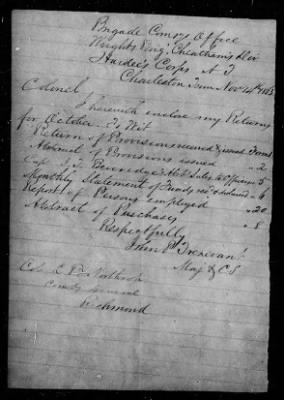 Brigade Comsy Office
Wrights Brig' Cheathams Div
Hardees Corps A T
Charleston Tenn Nov 14th 1863
Colonel
I herewith enclose my Returns
for October. To Wit
Return of Provisions received & issued Form 1
Abstract of Provisions issued " 2
Capt J. T. sales to Officers 5
Monthly Statement of Funds recd & disbursed " 6
Report of Persons employed " 20
Abstract of Purchases " 8
Respectfully
John P Trezevant
Maj & CS
Col L B Northrop
Comsy General
Richmond